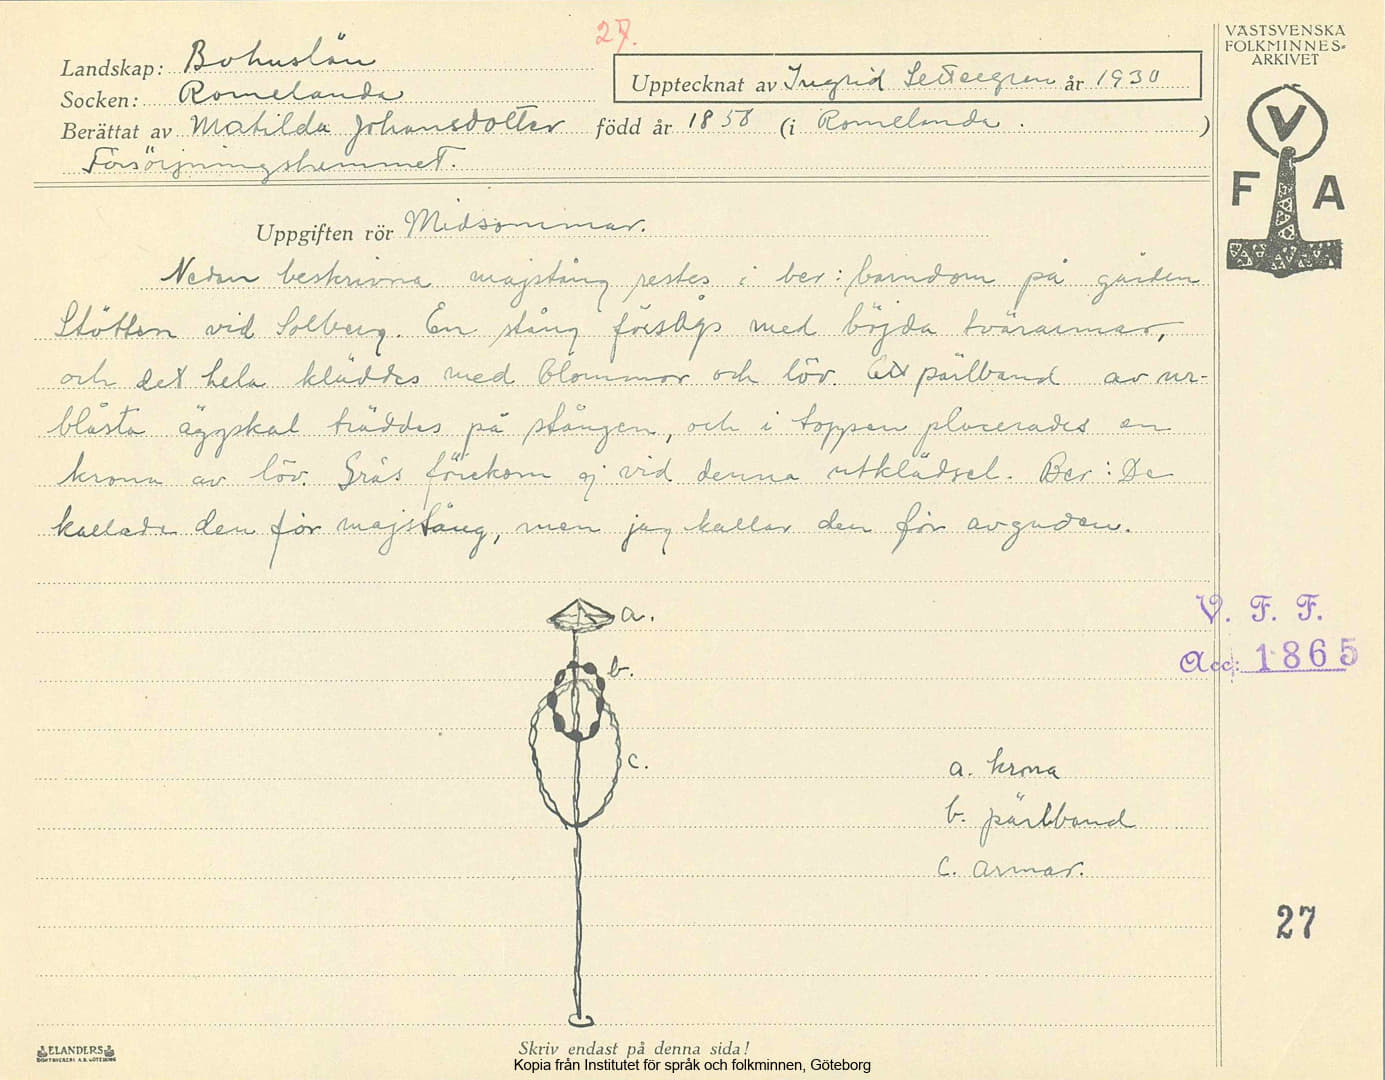 27.
VÄSTSVENSKA
FOLKMINNES-
ARKIVET
Landskap: Bohuslän
Upptecknat av Ingrid Settergren år 1930
Socken: Romelanda
Berättat av Matilda Johansdotter född år 1858 (i Romelanda. )
Försörjningshemmet.
V
F A
Uppgiften rör Midsommar.
Nedan beskrivna majstång restes i ber: barndom på gården
Stötten vid Solberg. En stång försågs med böjda tvärarmar,
och det hela kläddes med blommor och löv. Ett pärlband av ur-
blåsta äggskal träddes på stången, och i toppen placerades en
krona av löv. Gräs förekom ej vid denna utklädsel. Ber: De
kallade den för majstång, men jag kallar den för avguden.
a.
b.
c.
V. F. F.
Acc: 1865
a. krona
b. pärlband
c. armar.
27
ELANDERS
Skriv endast på denna sida!
Kopia från Institutet för språk och folkminnen, Göteborg